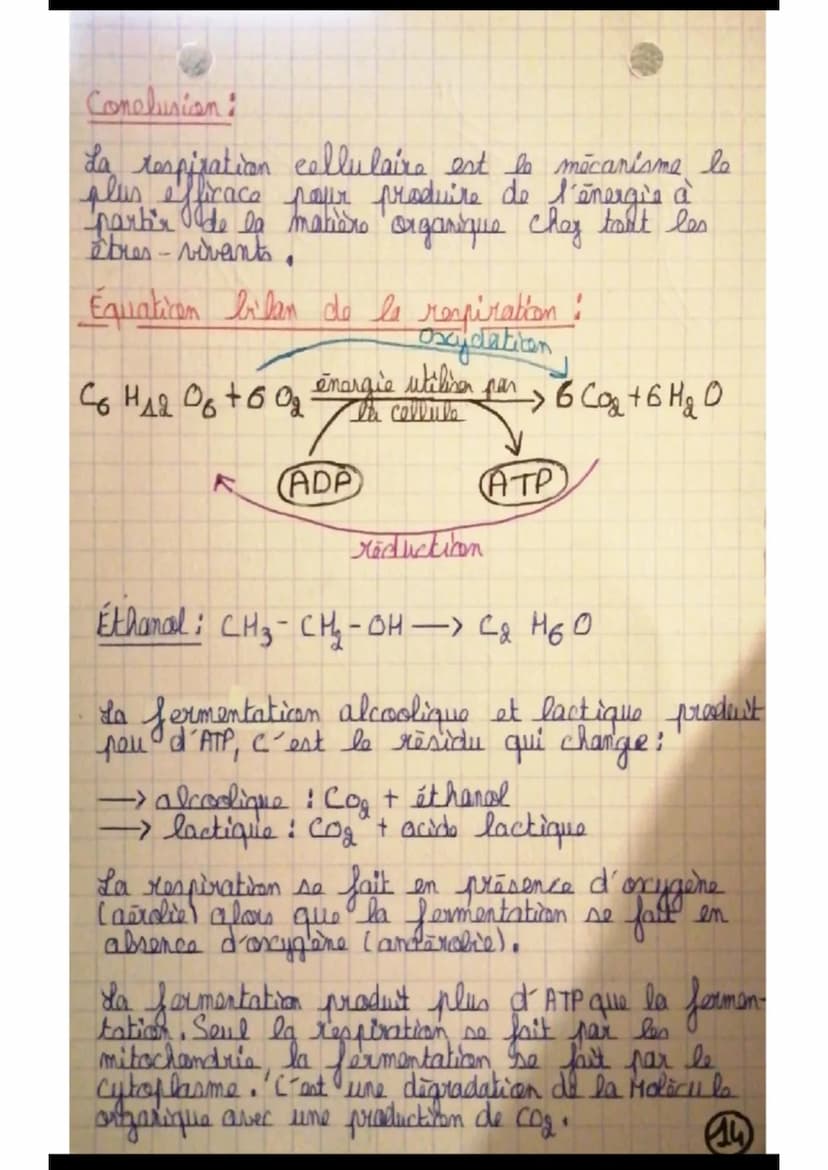 Conclusion :
La respiration cellulaire est le mécanisme le
plus efficace pour produire de l'énergie à
partir de la matière organique chez tout les
êtres-vivants.
Équation bilan de la respiration :
oxydation
C₆ H₁₂ O₆ + 6 O₂ énergie utiliser par la cellule → 6 CO₂ + 6 H₂ O
ADP ATP
réduction
Éthanol : CH₃ - CH₂ - OH → C₂ H₆ O
La fermentation alcoolique et lactique produit
peu d'ATP, c'est le résidu qui change :
→ alcoolique : CO₂ + éthanol
→ lactique : CO₂ + acide lactique
La respiration se fait en présence d'oxygène
(aérobie) alors que la fermentation se fait en
absence d'oxygène (anaérobie).
La formentation produit plus d'ATP que la fermen-
tation. Seul la respiration se fait par les
mitochondrie, la fermentation se fait par le
cytoplasme. C'est une dégradation de la Molécule
organique avec une production de CO₂.
14